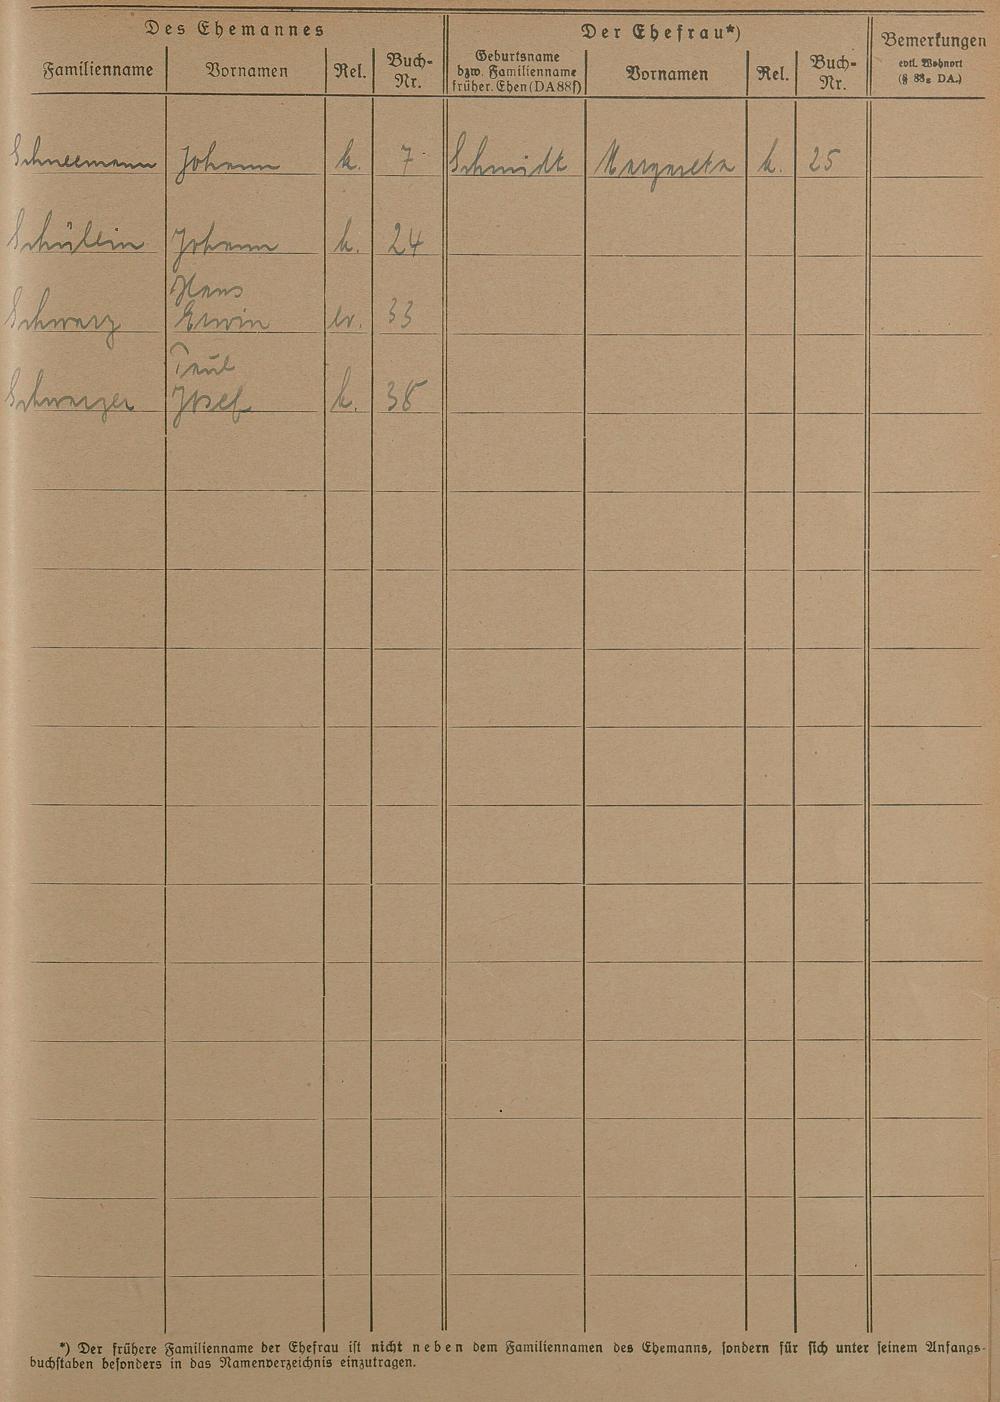 Des Ehemannes
Der Ehefrau*)
Bemerkungen
evtl. Wohnort
(§ 88g DA.)
Familienname
Vornamen
Rel.
Buch-
Nr.
Geburtsname
bzw. Familienname
früher. Ehen (DA 88f)
Vornamen
Rel.
Buch-
Nr.
Schneemann Johann k. 7 Schmidt Margareta k. 25
Schüllein Johann k. 24
Hans
Schwarz Erwin ev. 33
Paul
Schwarzer Josef k. 38
*) Der frühere Familienname der Ehefrau ist nicht neben dem Familiennamen des Ehemanns, sondern für sich unter seinem Anfangs-
buchstaben besonders in das Namenverzeichnis einzutragen.